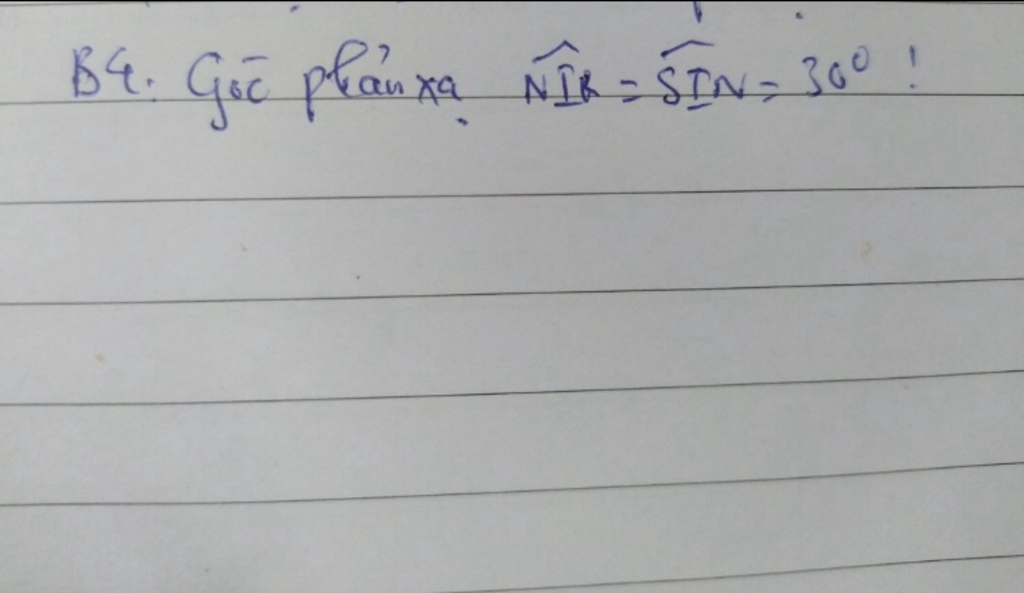 B4. Góc phản xạ NIR = SIN = 30° !